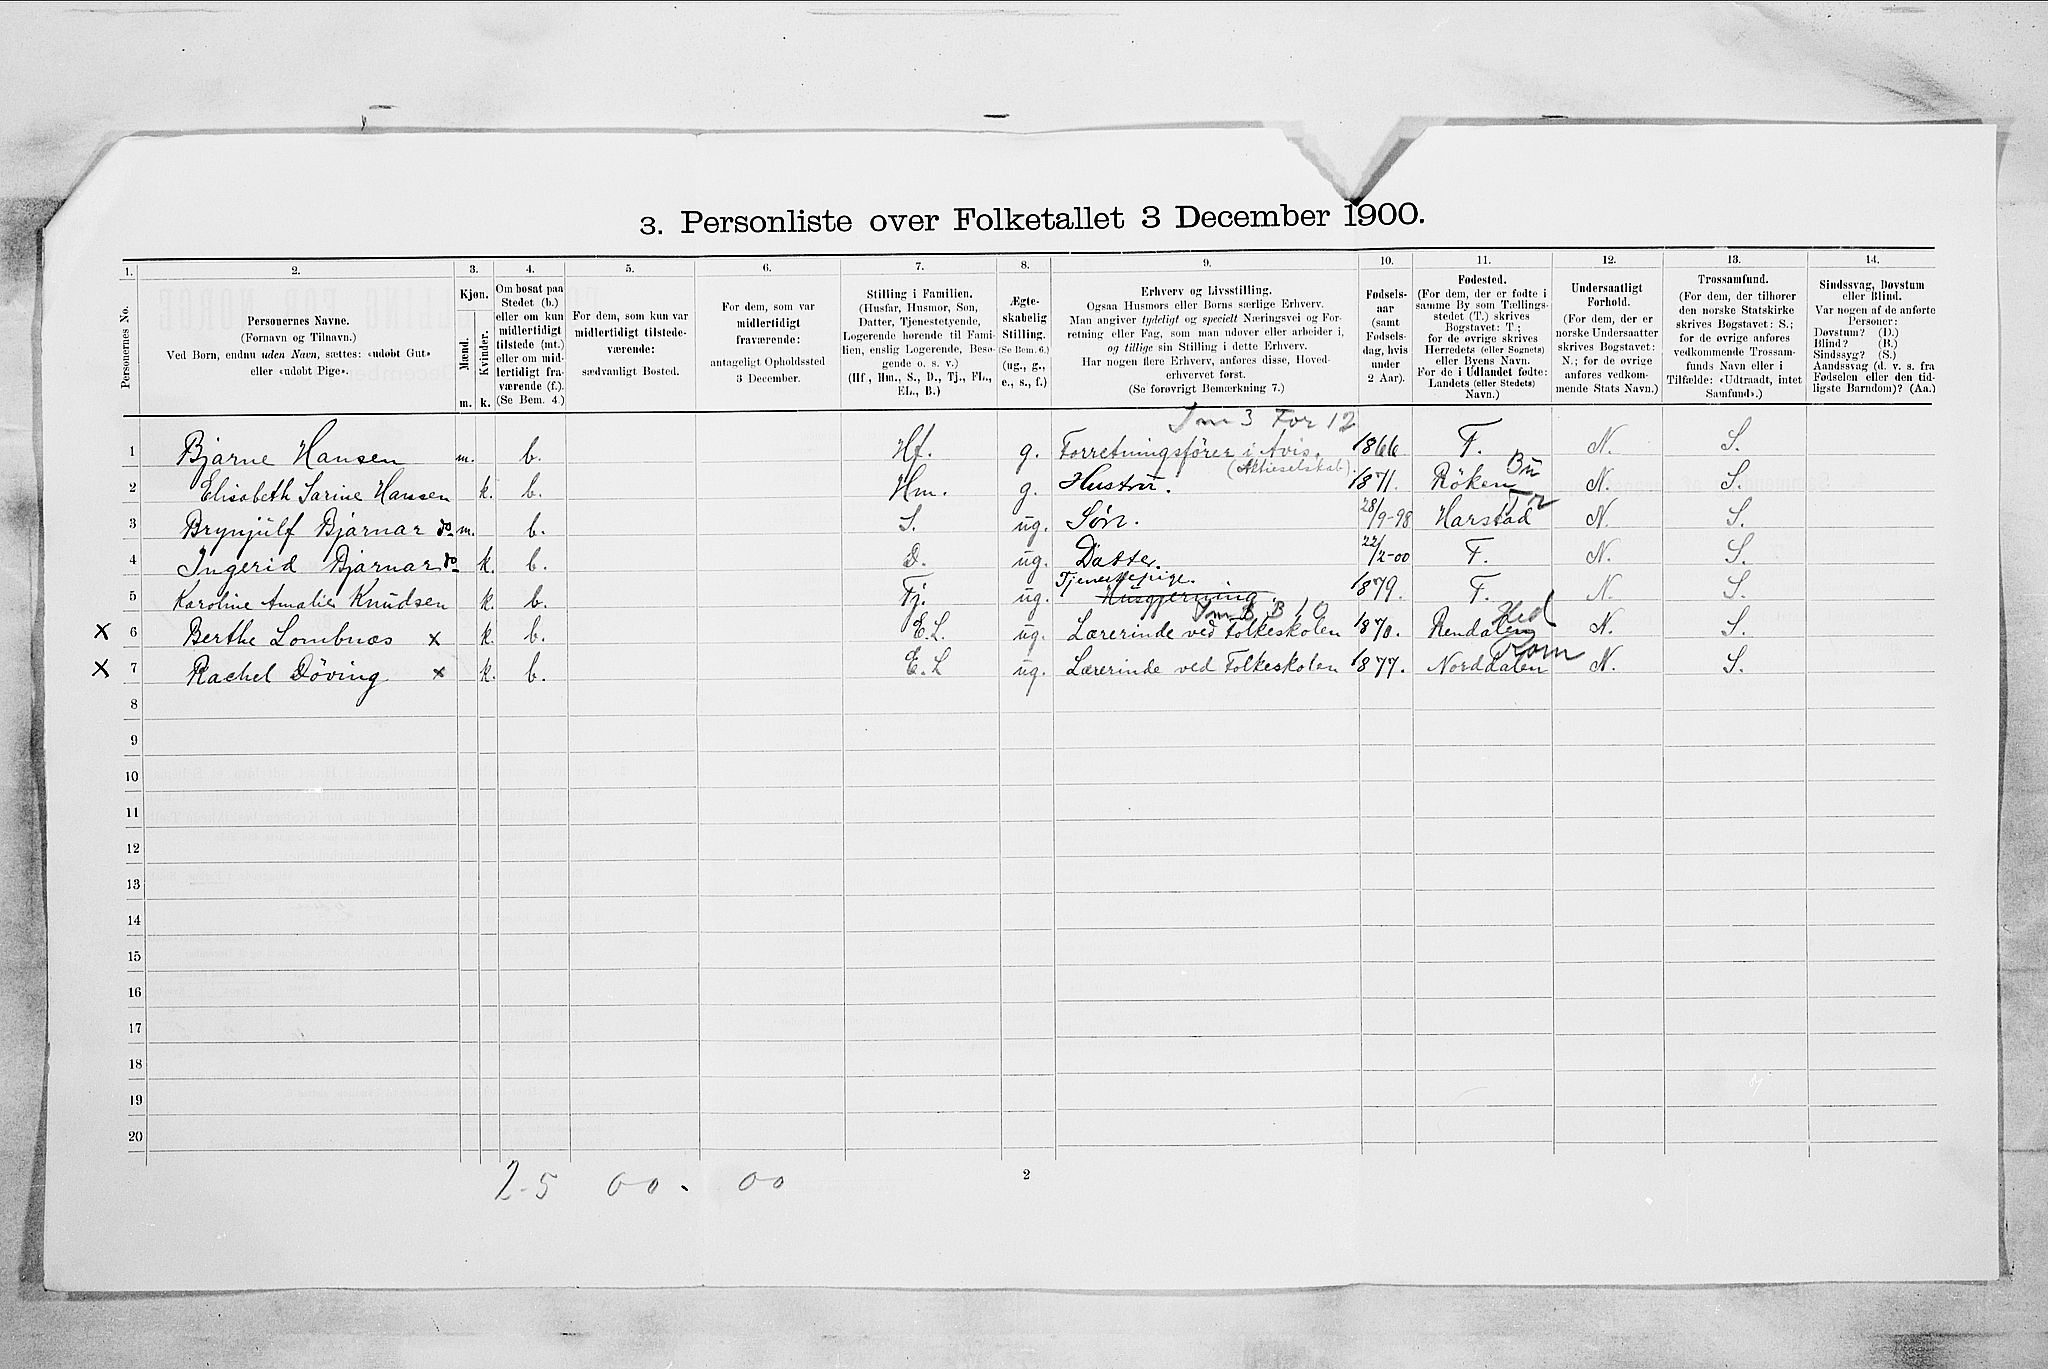 3. Personliste over Folketallet 3 December 1900.
1. 2. 3. 4. 5. 6. 7. 8. 9. 10. 11. 12. 13. 14.
Personernes No.
Personernes Navne.
(Fornavn og Tilnavn.)
Ved Børn, endnu uden Navn, sættes: «udøbt Gut»
eller «udøbt Pige».
Kjøn.
Mænd.
Kvinder.
m. k.
Om bosat paa
Stedet (b.)
eller om kun
midlertidigt
tilstede (mt.)
eller om mid-
lertidigt fra-
værende (f.).
(Se Bem. 4.)
For dem, som kun var
midlertidigt tilstede-
værende:
sædvanligt Bosted.
For dem, som var
midlertidigt
fraværende:
antageligt Opholdssted
3 December.
Stilling i Familien.
(Husfar, Husmor, Søn,
Datter, Tjenestetyende,
Logerende hørende til Fami-
lien, enslig Logerende, Besø-
gende o. s. v.)
(Hf., Hm., S., D., Tj., FL.,
EL., B.)
Ægte-
skabelig
Stilling.
(Se Bem. 6.)
(ug., g.,
e., s., f.)
Erhverv og Livsstilling.
Ogsaa Husmors eller Børns særlige Erhverv.
Man angiver tydeligt og specielt Næringsvei og For-
retning eller Fag, som man udøver eller arbeider i,
og tillige sin Stilling i dette Erhverv.
Har nogen flere Erhverv, anføres disse, Hoved-
erhvervet først.
(Se forøvrigt Bemærkning 7.)
Fødsels-
aar
(samt
Fødsels-
dag, hvis
under
2 Aar).
Fødested.
(For dem, der er fødte i
samme By som Tællings-
stedet (T.) skrives
Bogstavet: T.;
for de øvrige skrives
Herredets (eller Sognets)
eller Byens Navn.
For de i Udlandet fødte:
Landets (eller Stedets)
Navn.)
Undersaatligt
Forhold.
(For dem, der er
norske Undersaatter
skrives Bogstavet:
N.; for de øvrige
anføres vedkom-
mende Stats Navn.)
Trossamfund.
(For dem, der tilhører
den norske Statskirke
skrives Bogstavet: S.;
for de øvrige anføres
vedkommende Trossam-
funds Navn eller i
Tilfælde: «Udtraadt, intet
Samfund».)
Sindssvag, Døvstum
eller Blind.
Var nogen af de anførte
Personer:
Døvstum? (D.)
Blind? (B.)
Sindssyg? (S.)
Aandssvag (d. v. s. fra
Fødselen eller den tid-
ligste Barndom)? (Aa.)
3 For 12
1 Bjarne Hansen m. b. Hf. g. Forretningsfører i Avis. 1866 T. N. S.
(Aktieselskab). Bu
2 Elisabeth Sarine Hansen k. b. Hm. g. Hustru. 1871. Röken N. S.
Tr
3 Brynjulf Bjarnar do m. b. S. ug. Søn. 28/9-98 Harstad N. S.
4 Ingerid Bjarnar do k. b. D. ug. Datter. 22/2-00 T. N. S.
Tjenestepige.
5 Karoline Amalie Knudsen k. b. Tj. ug. Husgjerning. 1879. T. N. S.
B 10 Hed
X 6 Berthe Lombnæs x k. b. E.L. ug. Lærerinde ved Folkeskolen 1870. Rendalen N. S.
Rom
X 7 Rachel Döving x k. b. E.L ug. Lærerinde ved Folkeskolen 1877. Norddalen N. S.
8
9
10
11
12
13
14
15
16
17
18
19
20
2-5 00. 00
2